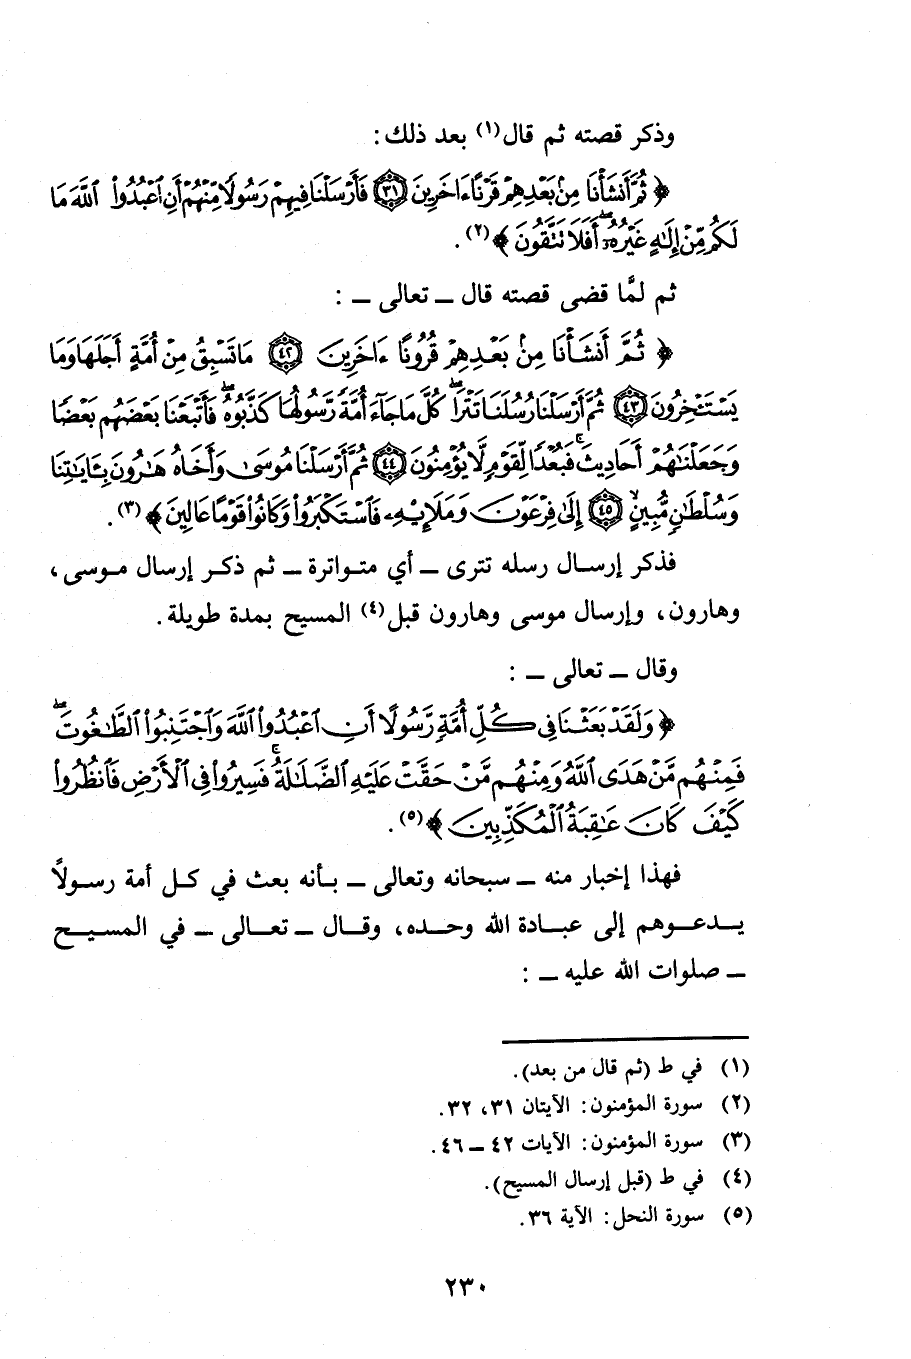 وذكر قصته ثم قال(١) بعد ذلك:
﴿ ثُمَّ أَنشَأْنَا مِنۢ بَعْدِهِمْ قَرْنًا ءَاخَرِينَ ٣١ فَأَرْسَلْنَا فِيهِمْ رَسُولًا مِّنْهُمْ أَنِ ٱعْبُدُوا۟ ٱللَّهَ مَا
لَكُم مِّنْ إِلَٰهٍ غَيْرُهُۥٓ ۖ أَفَلَا تَتَّقُونَ ﴾(٢).
ثم لمَّا قضى قصته قال ــ تعالى ــ :
﴿ ثُمَّ أَنشَأْنَا مِنۢ بَعْدِهِمْ قُرُونًا ءَاخَرِينَ ٤٢ مَا تَسْبِقُ مِنْ أُمَّةٍ أَجَلَهَا وَمَا
يَسْتَـْٔخِرُونَ ٤٣ ثُمَّ أَرْسَلْنَا رُسُلَنَا تَتْرَا ۖ كُلَّ مَا جَآءَ أُمَّةً رَّسُولُهَا كَذَّبُوهُ ۖ فَأَتْبَعْنَا بَعْضَهُم بَعْضًا
وَجَعَلْنَٰهُمْ أَحَادِيثَ ۚ فَبُعْدًا لِّقَوْمٍ لَّا يُؤْمِنُونَ ٤٤ ثُمَّ أَرْسَلْنَا مُوسَىٰ وَأَخَاهُ هَٰرُونَ بِـَٔايَٰتِنَا
وَسُلْطَٰنٍ مُّبِينٍ ٤٥ إِلَىٰ فِرْعَوْنَ وَمَلَإِي۟هِۦ فَٱسْتَكْبَرُوا۟ وَكَانُوا۟ قَوْمًا عَالِينَ ﴾(٣).
فذكر إرسال رسله تترى ــ أي متواترة ــ ثم ذكر إرسال موسى،
وهارون، وإرسال موسى وهارون قبل(٤) المسيح بمدة طويلة.
وقال ــ تعالى ــ :
﴿ وَلَقَدْ بَعَثْنَا فِى كُلِّ أُمَّةٍ رَّسُولًا أَنِ ٱعْبُدُوا۟ ٱللَّهَ وَٱجْتَنِبُوا۟ ٱلطَّٰغُوتَ ۖ
فَمِنْهُم مَّنْ هَدَى ٱللَّهُ وَمِنْهُم مَّنْ حَقَّتْ عَلَيْهِ ٱلضَّلَٰلَةُ ۚ فَسِيرُوا۟ فِى ٱلْأَرْضِ فَٱنظُرُوا۟
كَيْفَ كَانَ عَٰقِبَةُ ٱلْمُكَذِّبِينَ ﴾(٥).
فهذا إخبار منه ــ سبحانه وتعالى ــ بأنه بعث في كل أمة رسولاً
يدعوهم إلى عبادة الله وحده، وقال ــ تعالى ــ في المسيح
ــ صلوات الله عليه ــ :
(١) في ط (ثم قال من بعد).
(٢) سورة المؤمنون: الآيتان ٣١، ٣٢.
(٣) سورة المؤمنون: الآيات ٤٢ ــ ٤٦.
(٤) في ط (قبل إرسال المسيح).
(٥) سورة النحل: الآية ٣٦.
٢٣٠